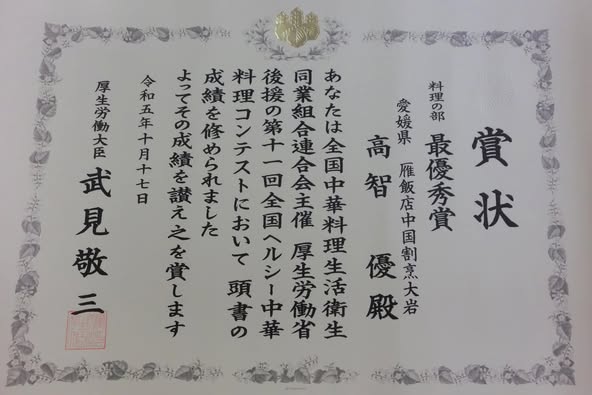 賞状
料理の部 最優秀賞
愛媛県 雁飯店中国割烹大岩
高智 優殿
あなたは全国中華料理生活衛生
同業組合連合会主催 厚生労働省
後援の第十一回全国ヘルシー中華
料理コンテストにおいて 頭書の
成績を修められました
よってその成績を讃え之を賞します
令和五年十月十七日
厚生労働大臣 武見敬三